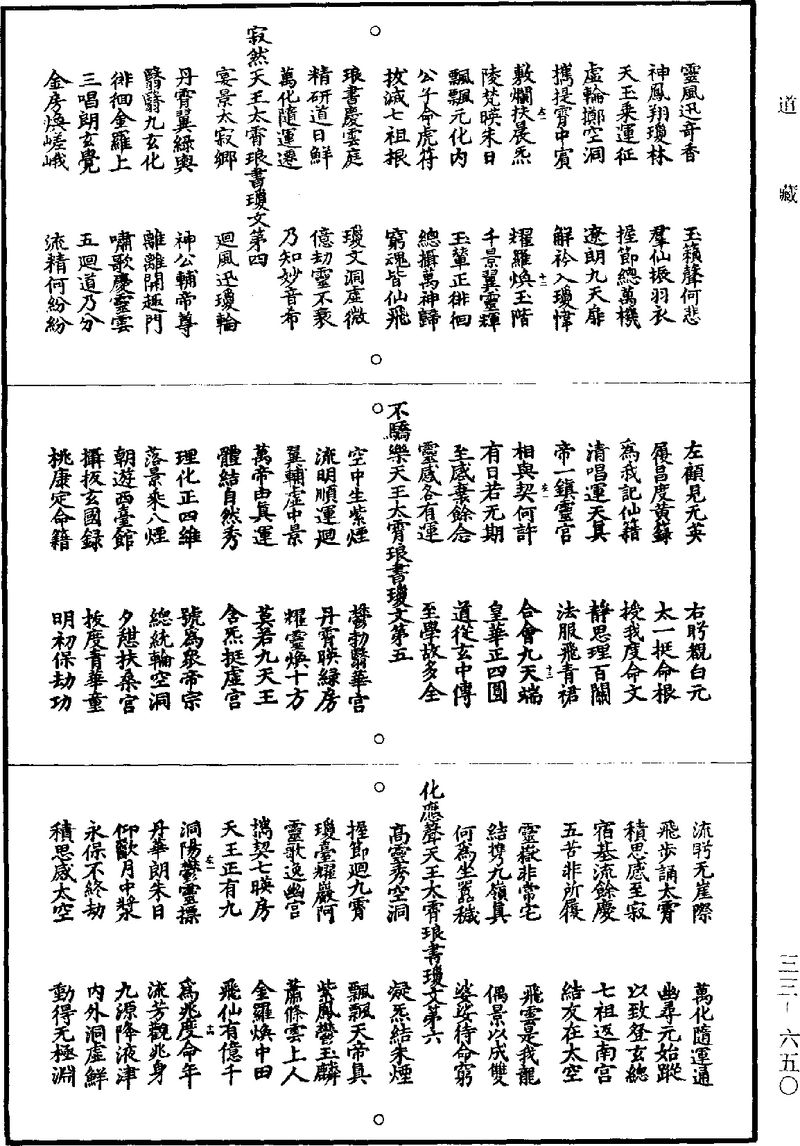 道藏
靈風迅奇香　玉籟聲何悲
神鳳翔瓊林　羣仙振羽衣
天王乘運征　握節總萬機
虛輪擲空洞　遼朗九天扉
攜提霄中賓　解衿入瓊幃
敷爛扶晨炁　耀羅煥玉階
陵梵映朱日　千景翼靈輝
飄飄元化內　玉輦正徘徊
公子命虎符　總攝萬神歸
拔滅七祖根　窮魂皆仙飛
琅書慶雲庭　瓊文洞虛微
精研道日鮮　億劫靈不衰
萬化隨運遷　乃知妙音希
寂然天王太霄琅書瓊文第四
宴景太寂鄉　迴風迅瓊輪
丹霄翼綠輿　神公輔帝尊
翳翳九玄化　離離開趣門
徘徊金羅上　嘯歌慶靈雲
三唱朗玄覺　五迴道乃分
金房煥嵯峨　流精何紛紛
左顧見元英　右眄觀白元
履昌度黃籙　太一挺命根
為我記仙籍　授我度命文
清唱運天真　靜思理百關
帝一鎮靈宮　法服飛青裙
相與契何許　合會九天端
有日若无期　皇華正四圓
至感棄餘念　道從玄中傳
靈感各有運　至學故多全
不驕樂天王太霄琅書瓊文第五
空中生紫煙　鬱勃翳華宮
流明順運迴　丹霄映綠房
翼輔虛中景　耀靈煥十方
萬帝由真運　莫若九天王
體結自然秀　含炁挺虛宮
理化正四維　號為眾帝宗
落景乘八煙　總統輪空洞
朝遊西臺館　夕憩扶桑宮
攝拔玄國錄　拔度青華童
桃康定命籍　明初保劫功
流眄无崖際　萬化隨運通
飛步誦太霄　幽尋元始蹤
積思感至寂　以致登玄總
宿基流餘慶　七祖返南宮
五苦非所履　結友在太空
靈嶽非常宅　飛雲是我龍
結攜九嶺真　偶景以成雙
何為坐囂穢　娑娑待命窮
化應聲天王太霄琅書瓊文第六
高靈秀空洞　凝炁結朱煙
握節迴九霄　飄飄天帝真
瓊臺耀巖阿　紫鳳鬱玉麟
靈歌逸幽宮　蕭條雲上人
攜契七映房　金羅煥中田
天王正有九　飛仙有億千
洞陽鬱靈摽　為兆度命年
丹華朗朱日　流芳觀兆身
仰歡月中漿　九源降液津
永保不終劫　內外洞虛鮮
積思感太空　動得无極淵
三三—六五〇